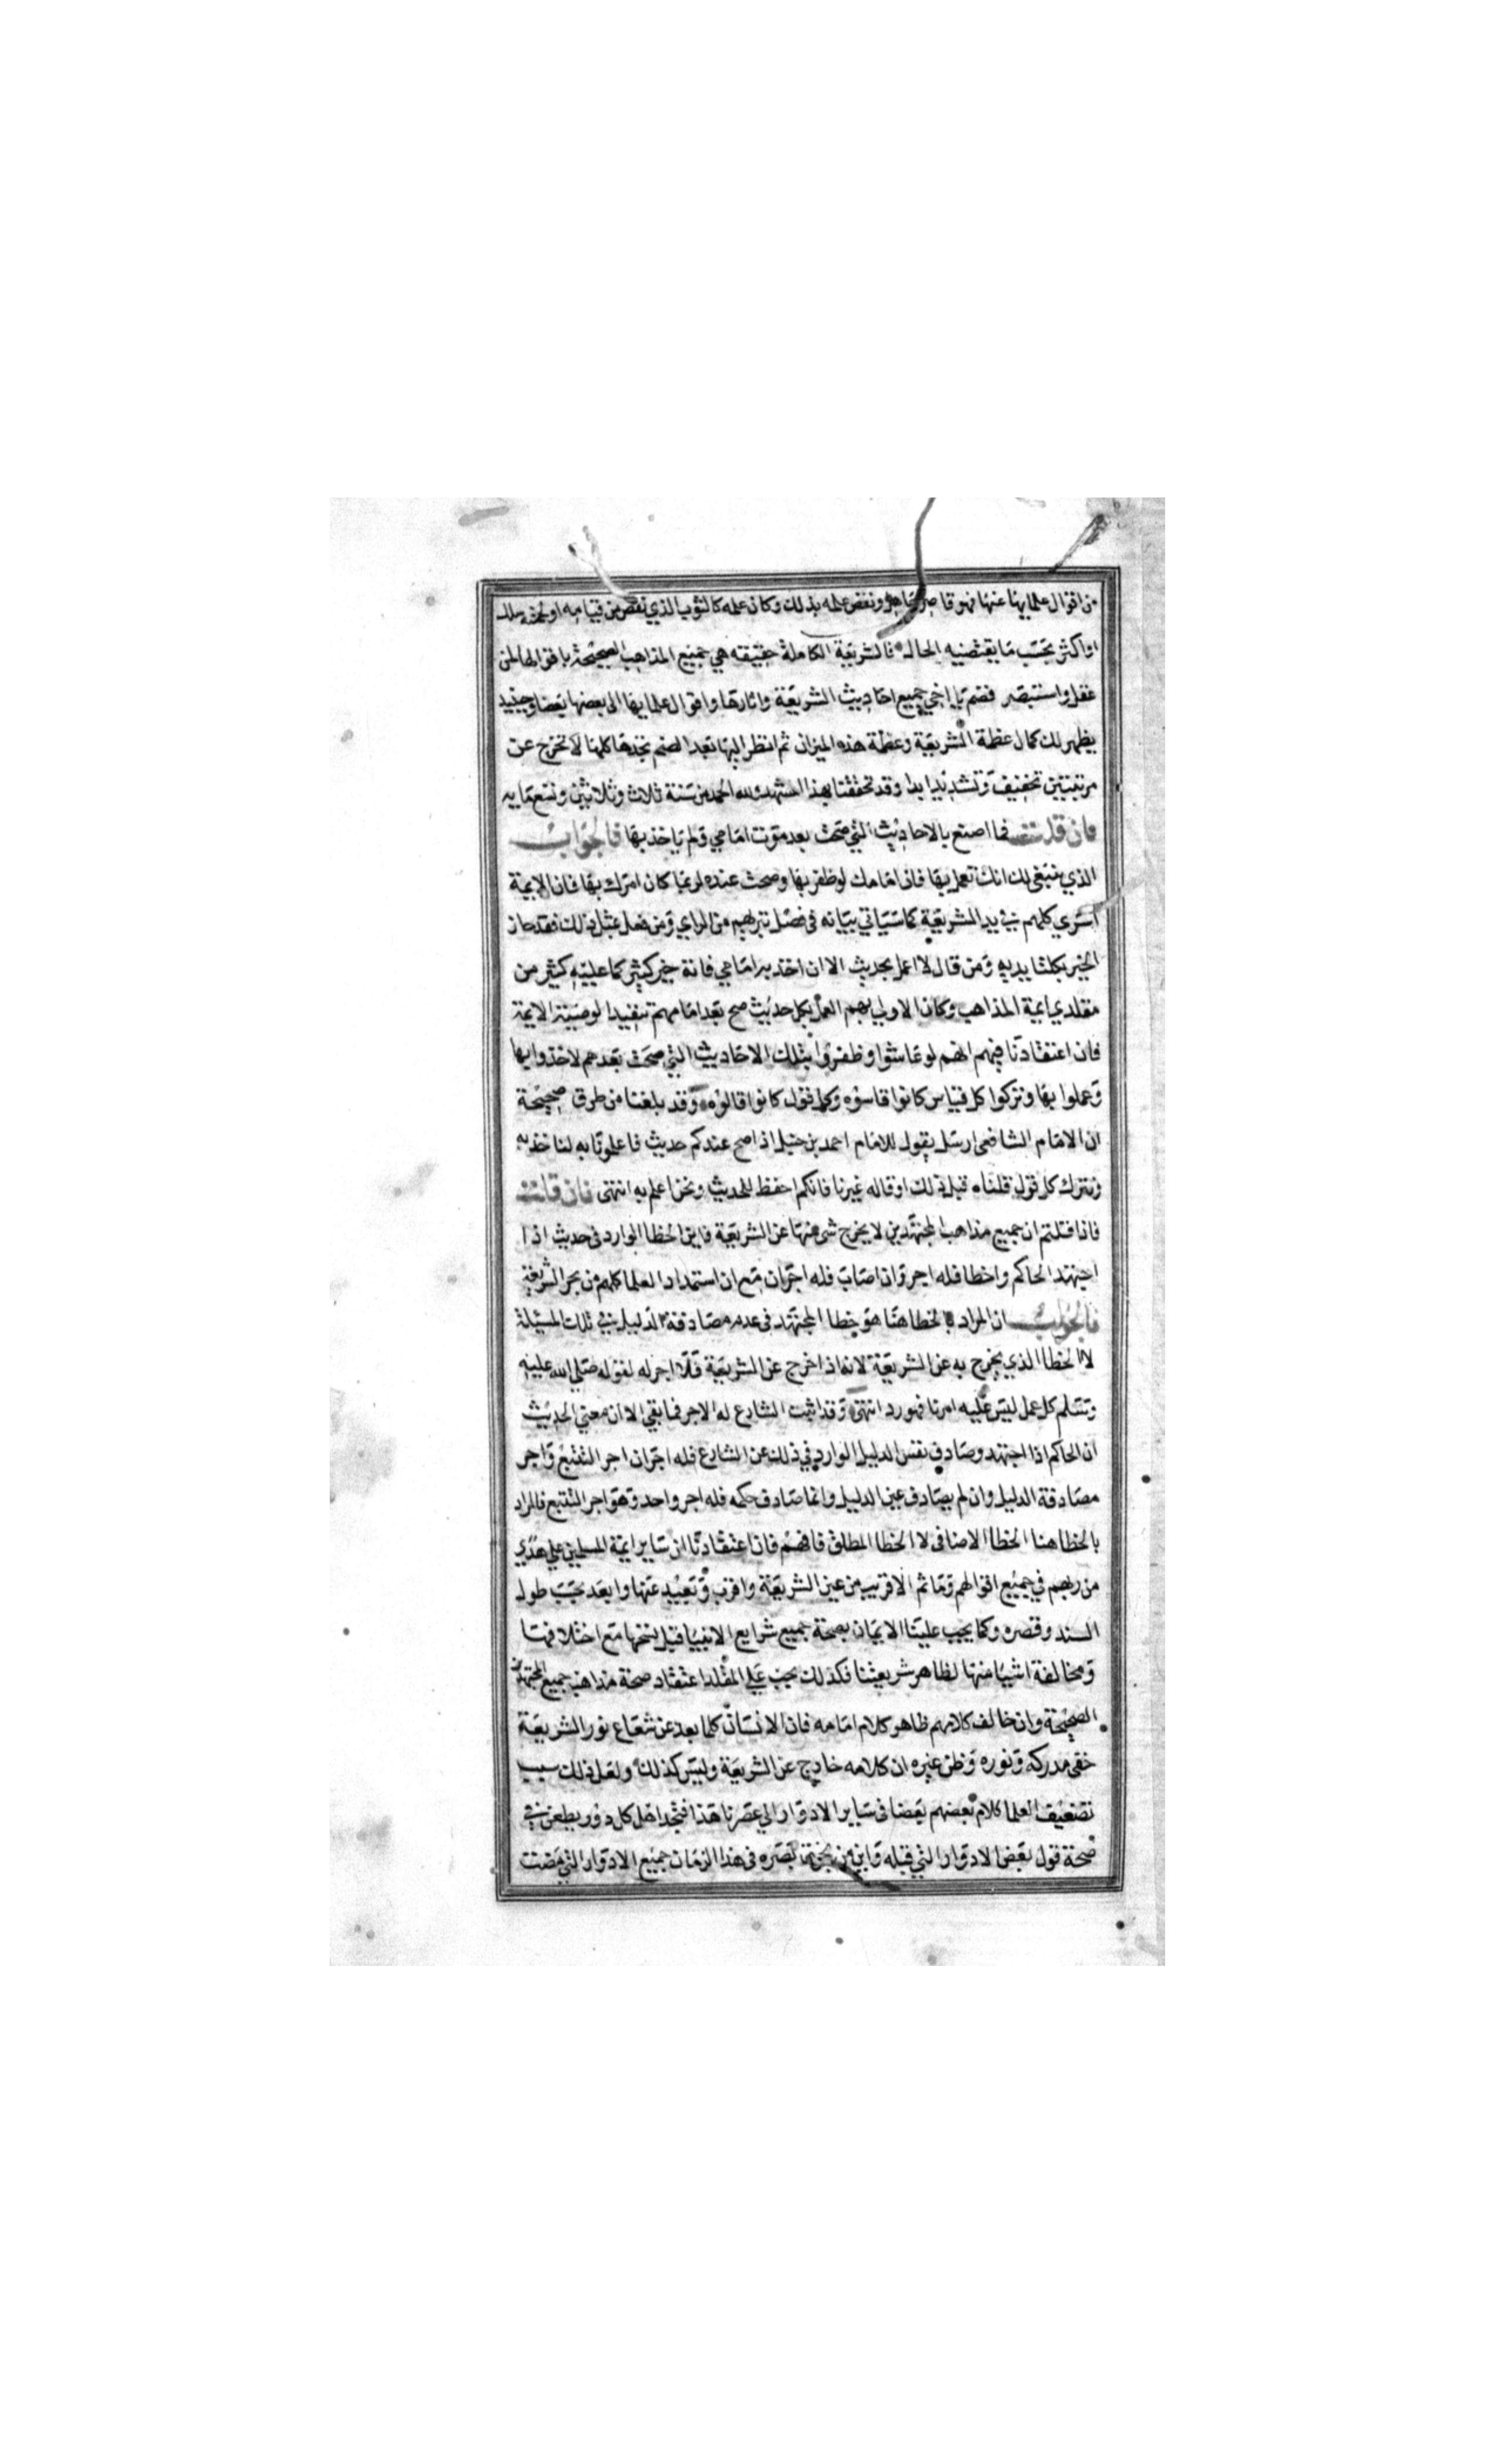 من اقوال علمايها عنها فهو قاصر جاهل ونقص علمه بذلك وكان علمه كالثوب الذي نقص من قيامه او لحمته سلك
او اكثر بحسب ما يقتضيه الحال فالشريعة الكاملة حقيقته هي جميع المذاهب الصحيحة باقوالها لمن
عقل واستبصر فضم يا اخي جميع احاديث الشريعة واثارها واقوال علمايها الى بعضها بعضا وحينيذ
يظهر لك كمال عظمة الشريعة وعظمة هذه الميزان ثم انظر اليها بعد الضم تجدها كلها لا تخرج عن
مرتبتين تخفيف وتشديد ابدا وقد تحققنا بهذا المشهد ولله الحمد من سنة ثلاث وثلاثين وتسعمايه
فان قلت فما اصنع بالاحاديث التي صحت بعد موت امامي ولم ياخذ بها فالجواب
الذي ينبغي لك انك تعمل بها فان امامك لو ظفر بها وصحت عنده لربما كان امرك بها فان الايمة
اسري كلهم في يد الشريعة كما سياتي بيانه في فصل تبريهم من الراي ومن فعل مثل ذلك فقد حاز
الخير بكلتا يديه ومن قال لا اعمل بحديث الا ان اخذ به امامي فاته خير كثير كما عليه كثير من
مقلدي ايمة المذاهب وكان الاولى بهم العمل بكل حديث صح بعد امامهم تنفيذا لوصية الايمة
فان اعتقادنا فيهم انهم لو عاشوا وظفروا بتلك الاحاديث التي صحت بعدهم لاخذوا بها
وعملوا بها وتركوا كل قياس كانوا قاسوه وكل قول كانوا قالوه وقد بلغنا من طرق صحيحة
ان الامام الشافعي ارسل يقول للامام احمد بن حنبل اذا صح عندكم حديث فاعلمونا به لناخذ به
ونترك كل قول قلناه قبل ذلك او قاله غيرنا فانكم احفظ للحديث ونحن اعلم به انتهى فان قلت
فاذا قلتم ان جميع مذاهب المجتهدين لا يخرج شي منها عن الشريعة فاين الخطا الوارد في حديث اذا
اجتهد الحاكم واخطا فله اجر وان اصاب فله اجران مع ان استمداد العلما كلهم من بحر الشريعة
فالجواب ان المراد بالخطا هنا هو خطا المجتهد في عدم مصادفة الدليل في تلك المسيلة
لا الخطا الذي يخرج به عن الشريعة لانه اذا خرج عن الشريعة فلا اجر له لقوله صلى الله عليه
وسلم كل عمل ليس عليه امرنا فهو رد انتهى وقد اثبت الشارع له الاجر فما بقي الا ان معنى الحديث
ان الحاكم اذا اجتهد وصادف نفس الدليل الوارد في ذلك عن الشارع فله اجران اجر التتبع واجر
مصادفة الدليل وان لم يصادف عين الدليل وانما صادف حكمه فله اجر واحد وهو اجر التتبع فالمراد
بالخطا هنا الخطا الاضافي لا الخطا المطلق فافهم فان اعتقادنا ان ساير ايمة المسلمين على هدي
من ربهم في جميع اقوالهم وما ثم الا قريب من عين الشريعة واقرب وبعيد عنها وابعد بحسب طول
السند وقصره وكما يجب علينا الايمان بصحة جميع شرايع الانبيا قبل نسخها مع اختلافها
ومخالفة اشيا منها لظاهر شريعتنا فكذلك يجب علي المقلد اعتقاد صحة مذاهب جميع المجتهدين
الصحيحة وان خالف كلامهم ظاهر كلام امامه فان الانسان كلما بعد عن شعاع نور الشريعة
خفى مدركه ونوره وظن غيره ان كلامه خارج عن الشريعة وليس كذلك ولعل ذلك سبب
تضعيف العلما كلام بعضهم بعضا في ساير الادوار الي عصرنا هذا فتجد اهل كل دور يطعن في
صحة قول بعض الادوار التي قبله واين من يخرق بصره في هذا الزمان جميع الادوار التي مضت